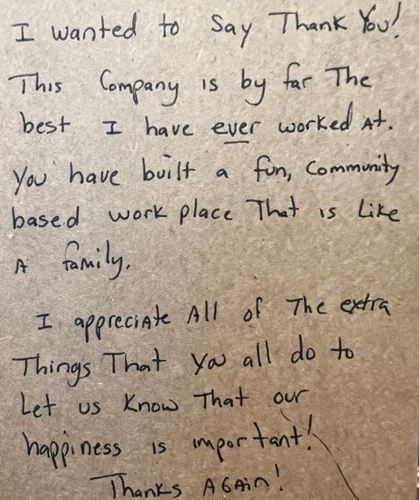 I wanted to Say Thank You!
This Company is by far The
best I have ever worked At.
You have built a fun, Community
based work place That is Like
A family.
I appreciAte All of The extra
Things That you all do to
Let us Know That our
happiness is important!
Thanks AGAin!